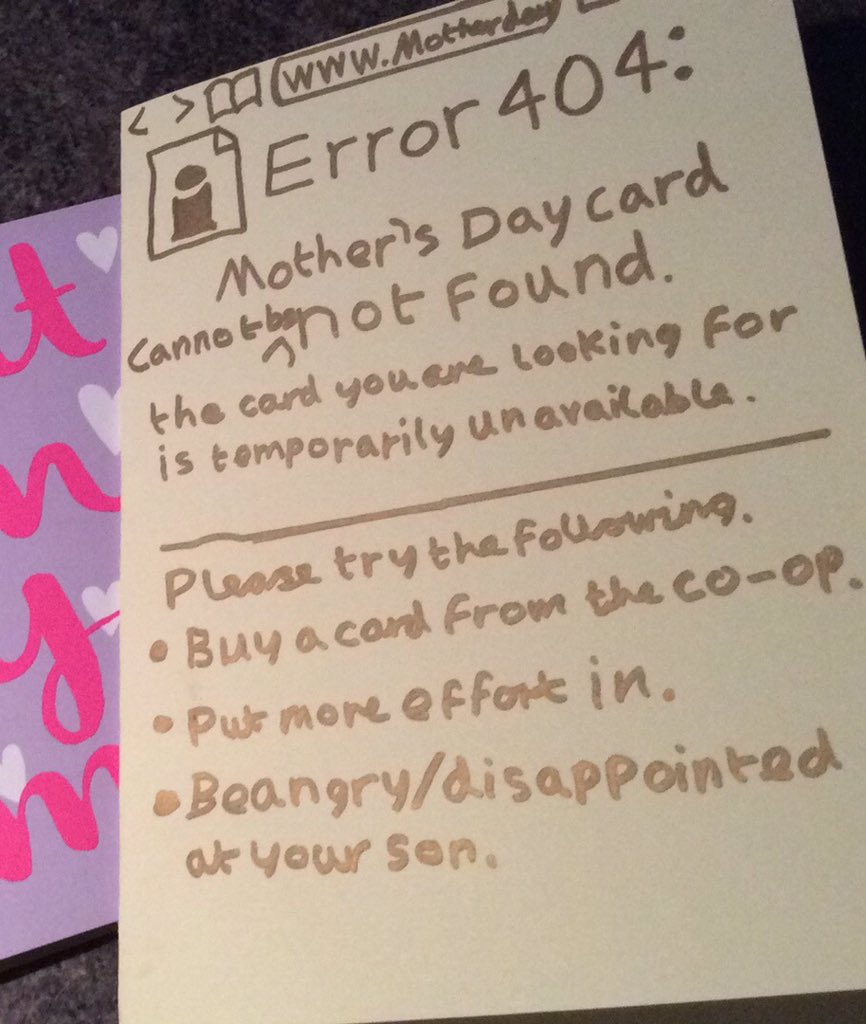 < > www.Motherday
Error 404:
Mother's Day card
Cannot be not Found.
the card you are looking for
is temporarily unavailable.
Please try the following.
• Buy a card from the co-op.
• Put more effort in.
• Be angry/disappointed
at your son.
t
n
y
m